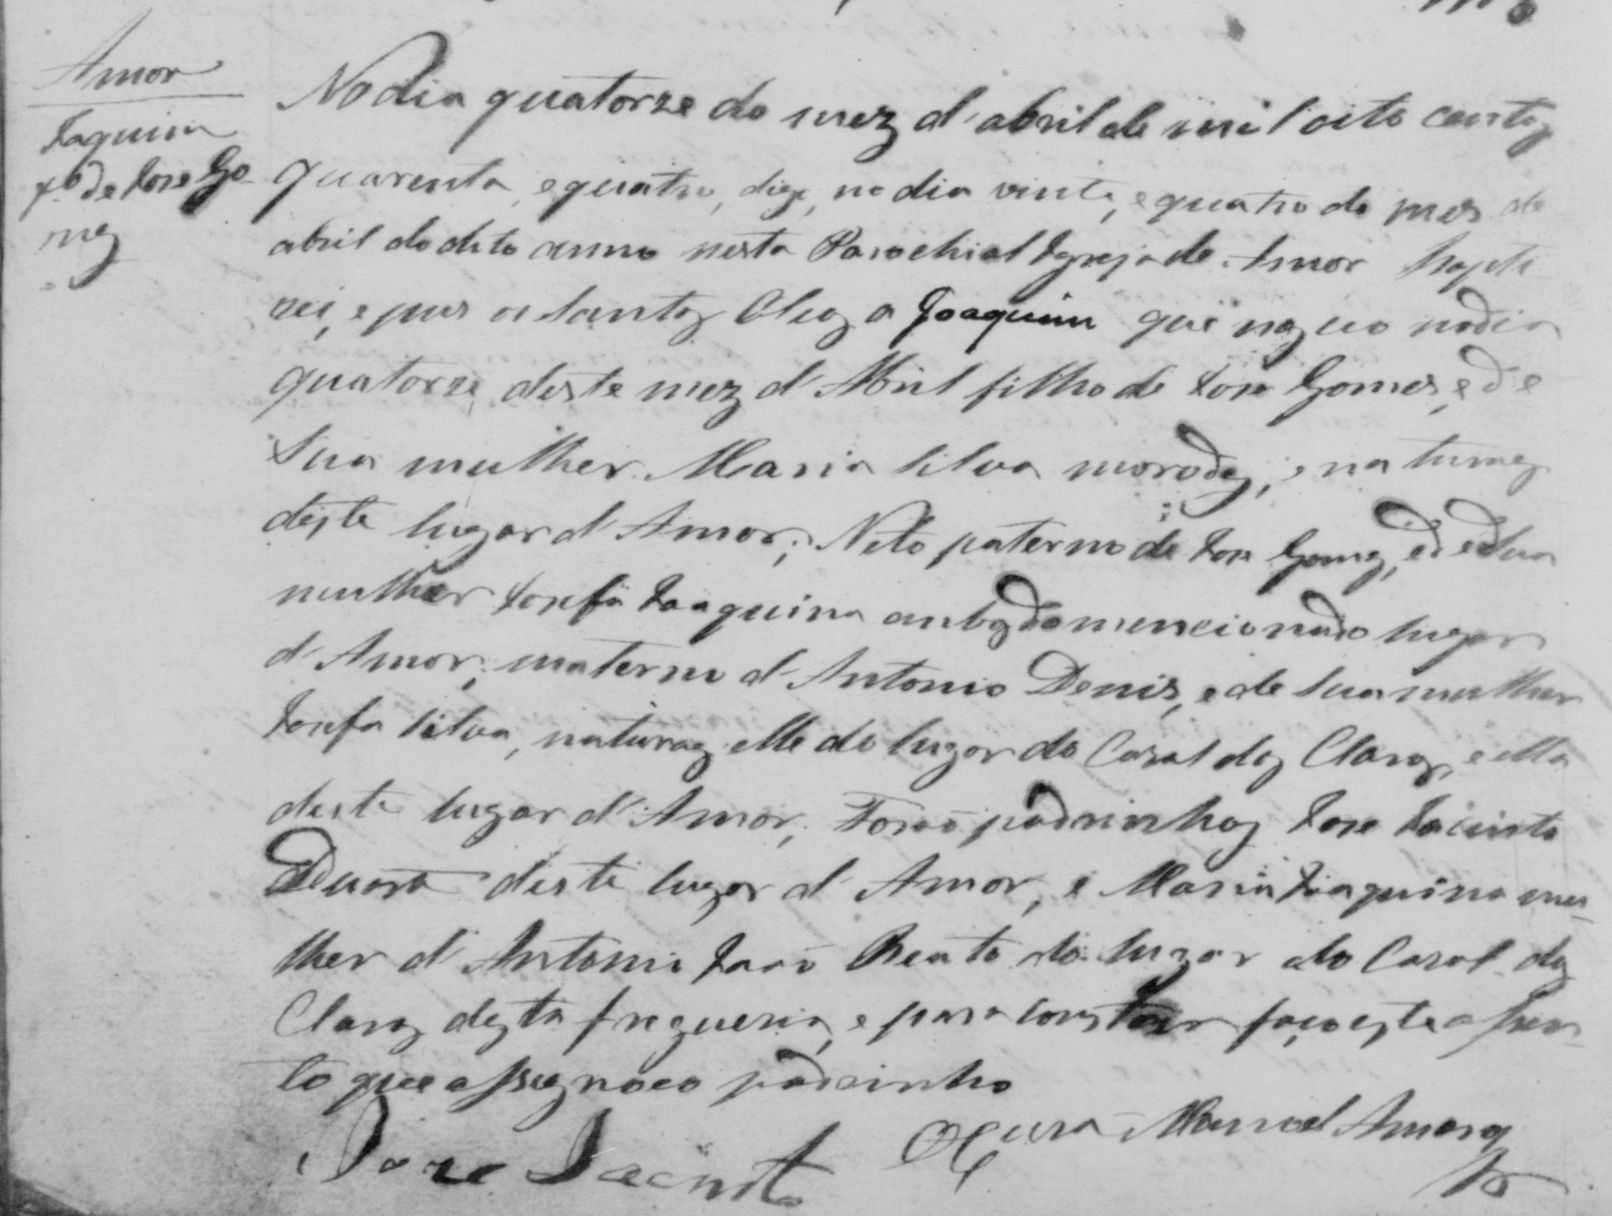 Amor
Jaquim
fº de Joze Go
mez
No dia quatorze do mez d'abril de mil oito centoz
quarenta, e quatro, digo, no dia vinte, e quatro do mes de
abril do dito anno nesta Parochial Igreja de Amor bapti
zei, e pus os Santoz Oleoz a Joaquim que nazceo no dia
quatorze deste mez d'Abril filho de Joze Gomes, e de
Sua mulher Maria Silva moradez, e naturaez
deste lugar d'Amor; Neto paterno de Joze Gomez, e de Sua
mulher Josefa Joaquina anboz do mencionado lugar
d'Amor; materno d'Antonio Denis, e de Sua mulher
Josefa Silva, naturaez elle do lugar do Casal doz Claroz, e ella
deste lugar d'Amor, Forão padrinhoz Joze Jacinto
Duarte deste lugar d'Amor, e Maria Joaquina mu-
lher d'Antonio João Beato do lugar do Casal doz
Claroz dezta freguezia, e para constar faço ezte assen-
to que assignoeo padrinho
O Cura Manoel Amaro
Joze Jacinto